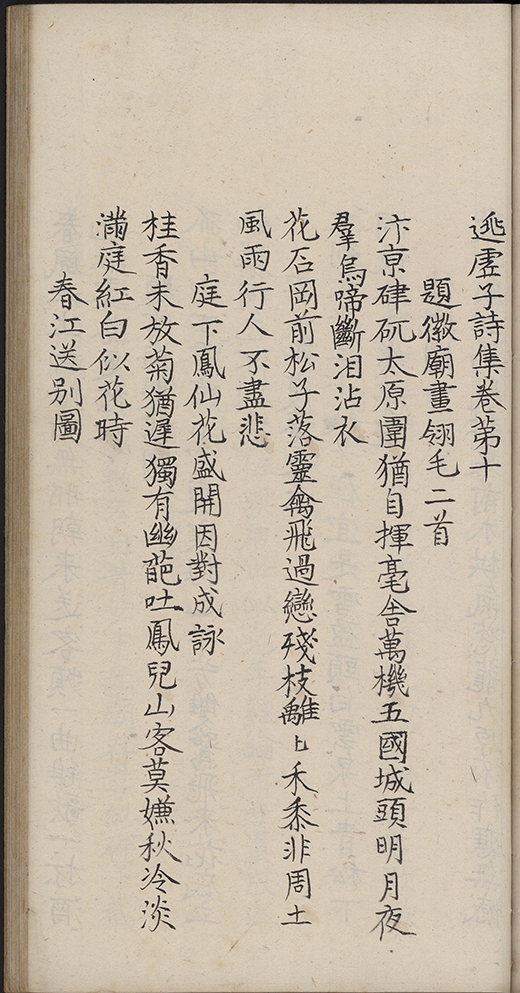 逃虛子詩集卷苐十
題徽廟畫翎毛二首
汴亰硉矹太原圍猶自揮毫舍萬機五國城頭明月夜
羣烏啼斷泪沾衣
花石岡前松子落靈禽飛過戀殘枝離〻禾黍非周土
風雨行人不盡悲
庭下鳳仙花盛開因對成詠
桂香未放菊猶遲獨有幽葩吐鳳兒山客莫嫌秋冷淡
滿庭紅白似花時
春江送别圖